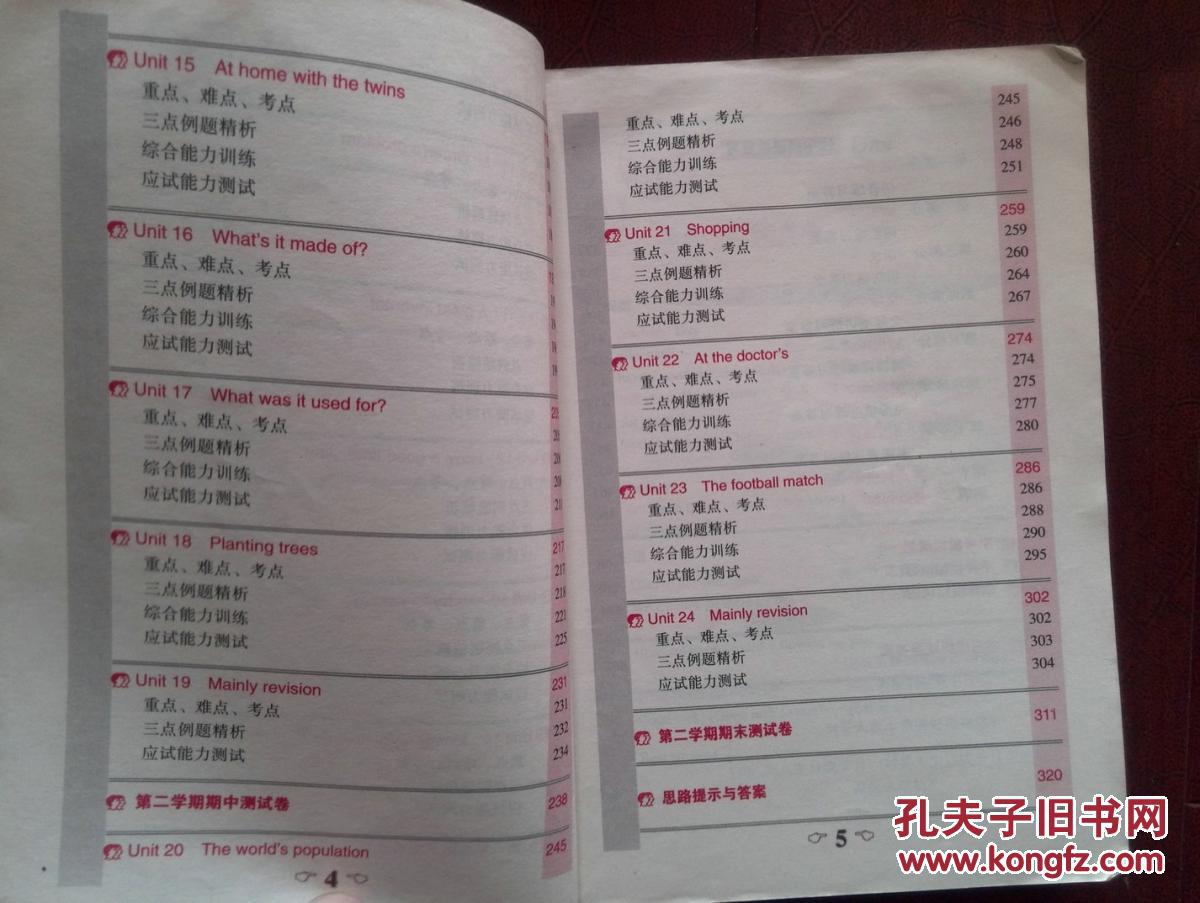 Unit 15 At home with the twins
重点、难点、考点
三点例题精析
综合能力训练
应试能力测试
Unit 16 What's it made of?
重点、难点、考点
三点例题精析
综合能力训练
应试能力测试
Unit 17 What was it used for?
重点、难点、考点
三点例题精析
综合能力训练
应试能力测试
Unit 18 Planting trees 217
重点、难点、考点 217
三点例题精析 218
综合能力训练 221
应试能力测试 225
Unit 19 Mainly revision 231
重点、难点、考点 231
三点例题精析 232
应试能力测试 234
第二学期期中测试卷 238
Unit 20 The world's population 245
4
重点、难点、考点 245
三点例题精析 246
综合能力训练 248
应试能力测试 251
Unit 21 Shopping 259
重点、难点、考点 259
三点例题精析 260
综合能力训练 264
应试能力测试 267
Unit 22 At the doctor's 274
重点、难点、考点 274
三点例题精析 275
综合能力训练 277
应试能力测试 280
Unit 23 The football match 286
重点、难点、考点 286
三点例题精析 288
综合能力训练 290
应试能力测试 295
Unit 24 Mainly revision 302
重点、难点、考点 302
三点例题精析 303
应试能力测试 304
第二学期期末测试卷 311
思路提示与答案 320
5
孔夫子旧书网
www.kongfz.com